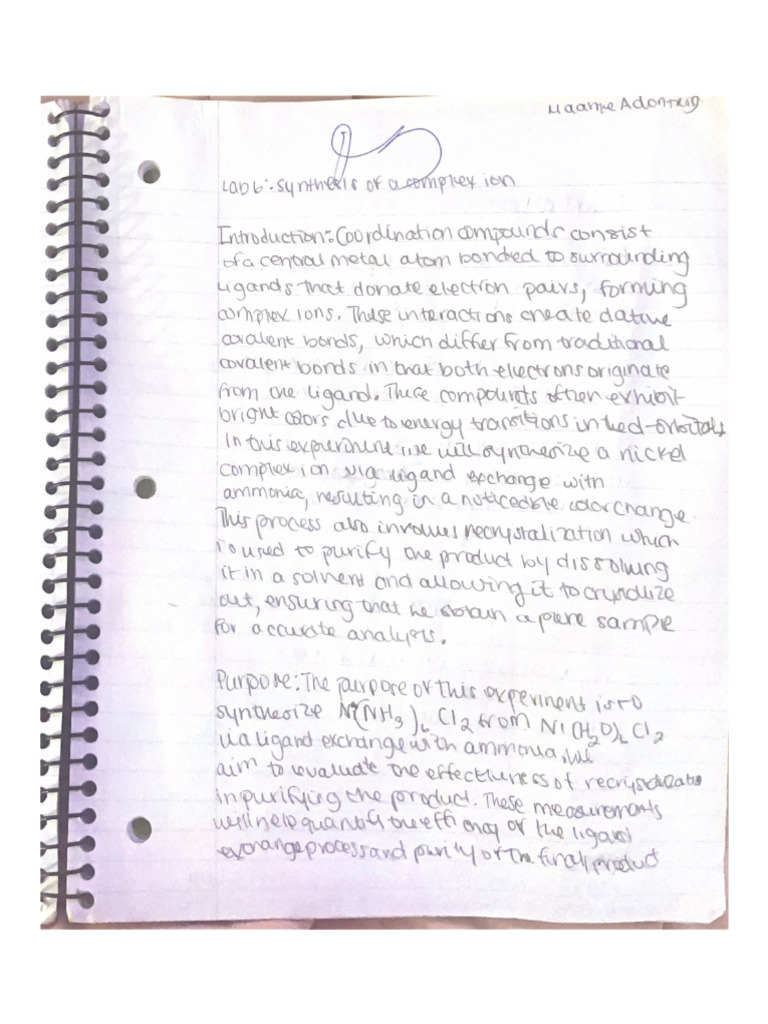 Lab 6: Synthesis of a complex ion
Introduction: Coordination compounds consist
of a central metal atom bonded to surrounding
ligands that donate electron pairs, forming
complex ions. These interactions create dative
covalent bonds, which differ from traditional
covalent bonds in that both electrons originate
from one ligand. These compounds often exhibit
bright colors due to energy transitions in the d-orbitals
In this experiment we will synthesize a nickel
complex ion via ligand exchange with
ammonia, resulting in a noticeable color change.
This process also involves recrystalization which
is used to purify the product by dissolving
it in a solvent and allowing it to crystallize
out, ensuring that we obtain a pure sample
for accurate analysis.
Purpose: The purpose of this experiment is to
synthesize Ni(NH3)6 Cl2 from Ni(H2O)6 Cl2
via ligand exchange with ammonia. We
aim to evaluate the effectiveness of
in purifying the product. These measurements
will help quantify the efficiency of the ligand
exchange process and purity of the final product